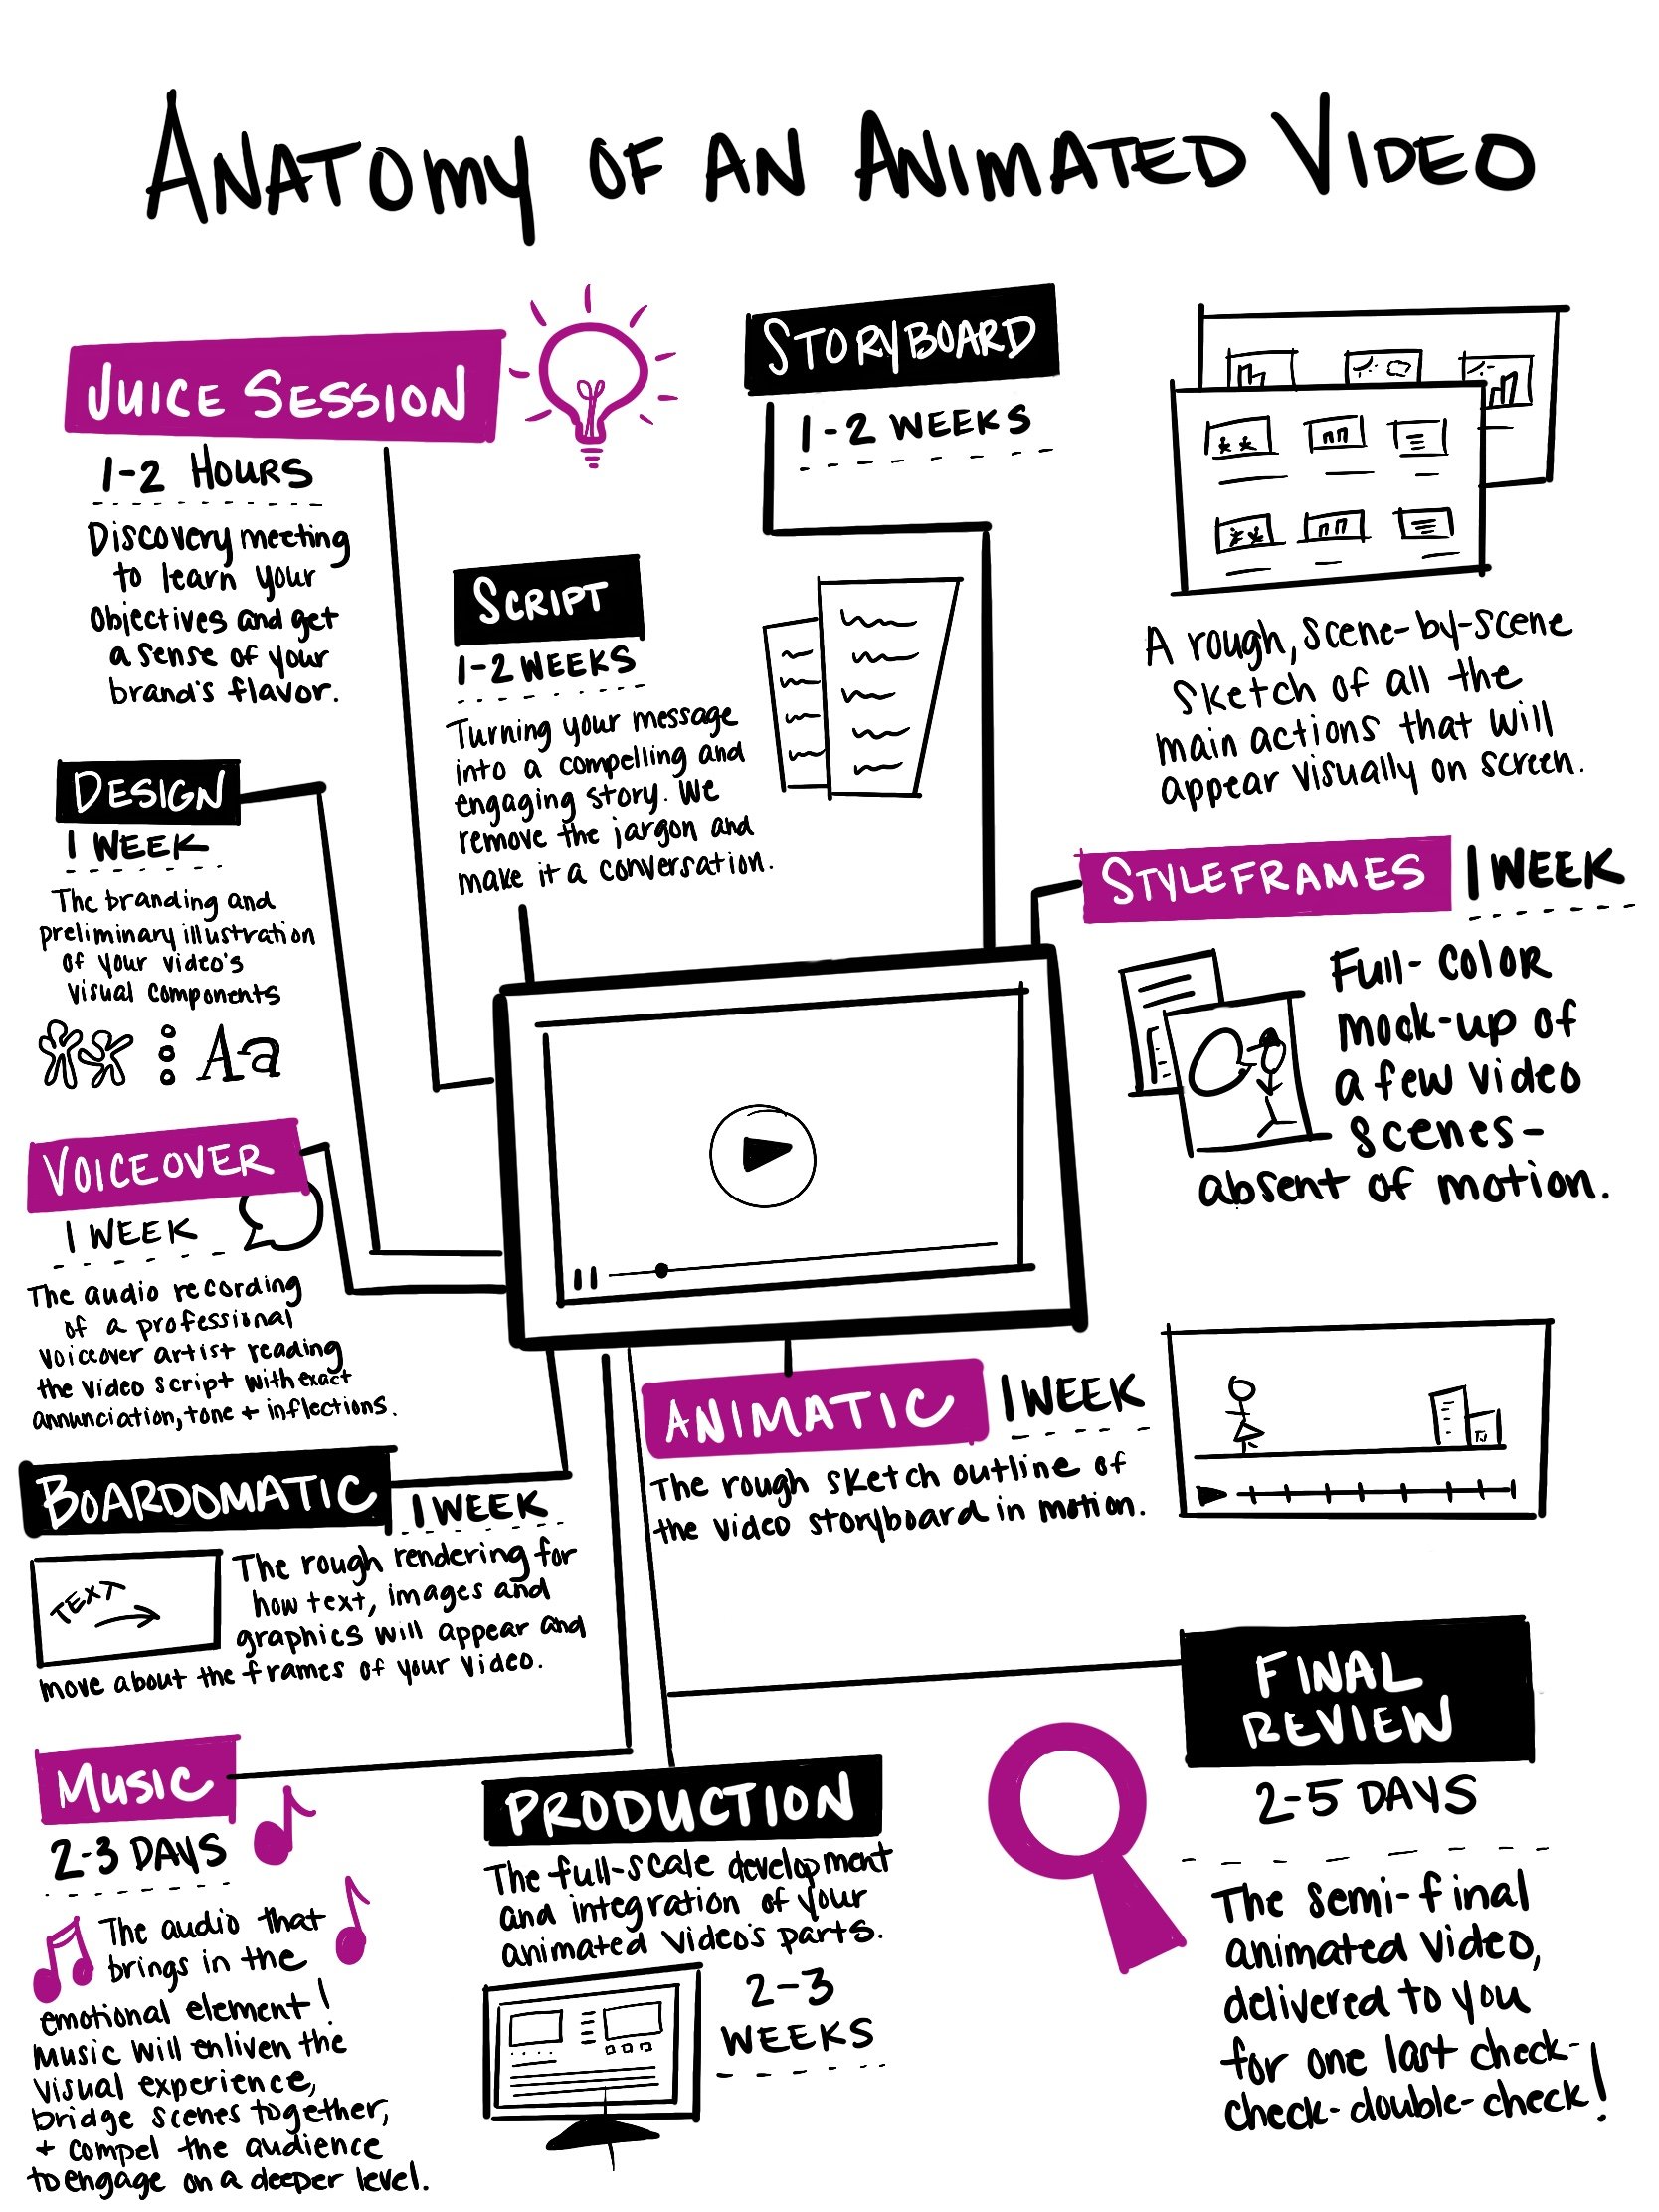 ANATOMY OF AN ANIMATED VIDEO
JUICE SESSION
1-2 HOURS
Discovery meeting
to learn your
objectives and get
a sense of your
brand's flavor.
STORYBOARD
1-2 WEEKS
A rough, scene-by-scene
sketch of all the
main actions that will
appear visually on screen.
SCRIPT
1-2 WEEKS
Turning your message
into a compelling and
engaging story. We
remove the jargon and
make it a conversation.
DESIGN
1 WEEK
The branding and
preliminary illustration
of your video's
visual components
A-a
STYLEFRAMES 1 WEEK
Full-color
mock-up of
a few video
scenes-
absent of motion.
VOICEOVER
1 WEEK
The audio recording
of a professional
voiceover artist reading
the video script with exact
annunciation, tone + inflections.
ANIMATIC 1 WEEK
The rough sketch outline of
the video storyboard in motion.
BOARDOMATIC 1 WEEK
TEXT
The rough rendering for
how text, images and
graphics will appear and
move about the frames of your video.
MUSIC
2-3 DAYS
The audio that
brings in the
emotional element!
Music will enliven the
visual experience,
bridge scenes together,
+ compel the audience
to engage on a deeper level.
PRODUCTION
The full-scale development
and integration of your
animated video's parts.
2-3
WEEKS
FINAL
REVIEW
2-5 DAYS
The semi-final
animated video,
delivered to you
for one last check-
check-double-check!